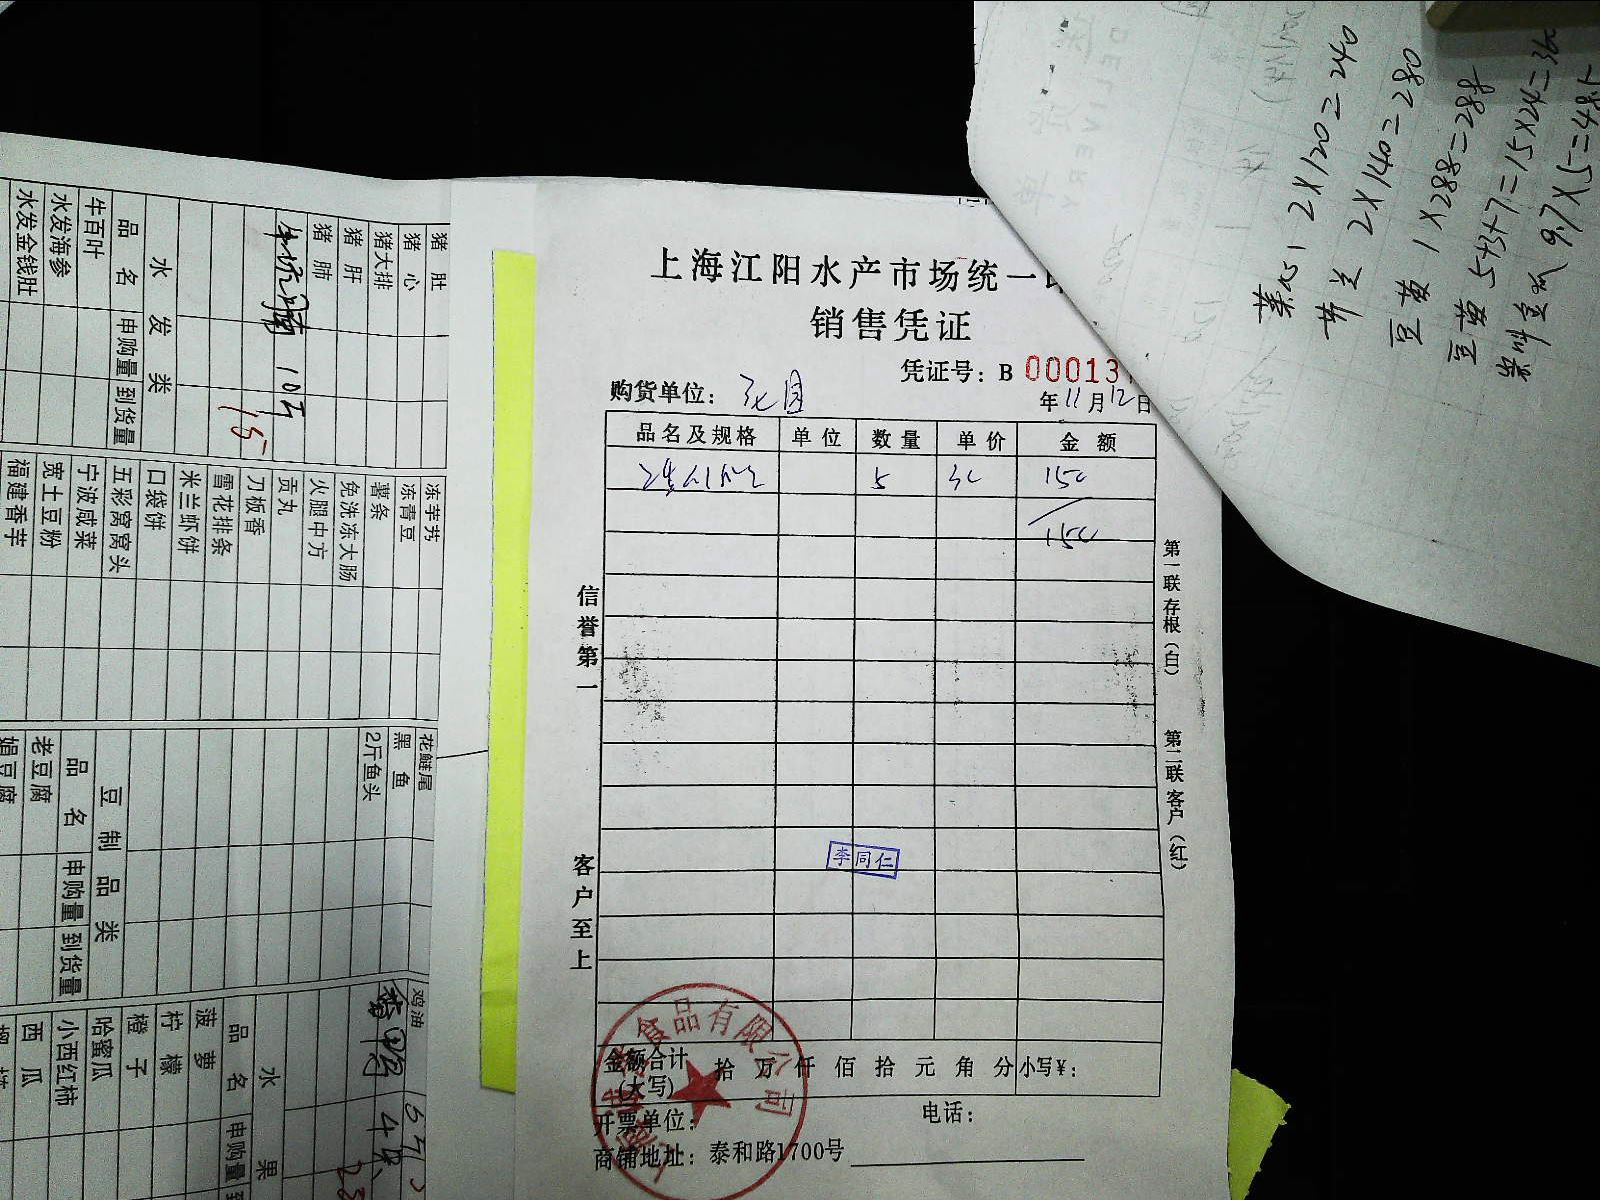 上海江阳水产市场统一
销售凭证
凭证号：B 00013
购货单位：
年11月12日
品名及规格 单位 数量 单价 金额
5 30 150
150
信誉第一
客户至上
第一联存根（白）
第二联客户（红）
李同仁
食品有限公司
金额合计(大写) 拾 万 仟 佰 拾 元 角 分 小写¥：
开票单位：
电话：
商铺地址：泰和路1700号
猪肚
猪心
猪大排
猪肝
猪肺
10斤
15
水发类
品名 申购量 到货量
牛百叶
水发海参
水发金钱肚
冻芋艿
冻青豆
薯条
免洗冻大肠
火腿中方
贡丸
刀板香
雪花排条
米兰虾饼
口袋饼
五彩窝窝头
宁波咸菜
宽土豆粉
福建香芋
花鲢尾
黑鱼
2斤鱼头
豆制品类
品名 申购量 到货量
老豆腐
娟豆腐
鸡油
水果
品名 申购量
菠萝
柠檬
橙子
哈蜜瓜
小西红柿
西瓜
2×120=240
2×140=280
豆苗 1×288=288
豆苗 5+3+7=15×24=360
9.7×5=48.5